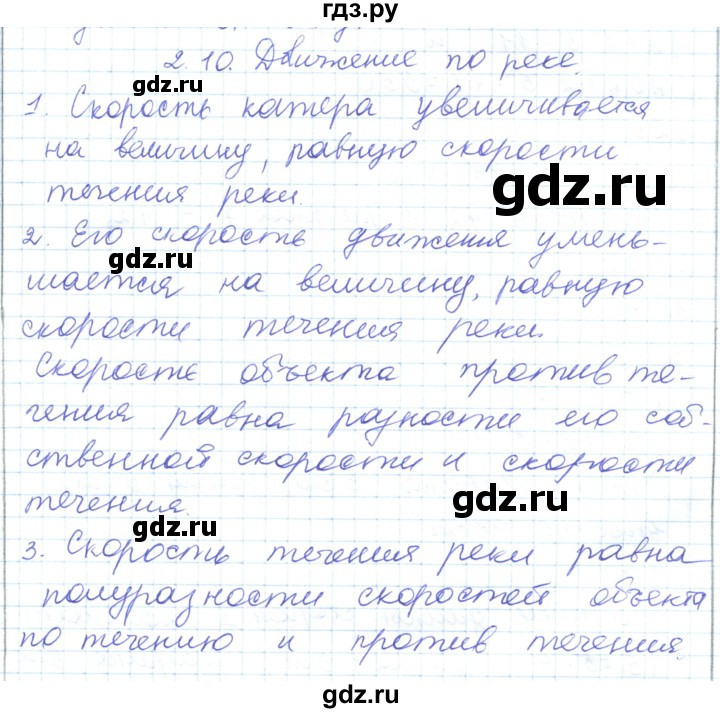 гдз.ру
2.10. Движение по реке.
gdz.ru
1. Скорость катера увеличивается
gdz.ru
на величину, равную скорости
gdz.ru
течения реки.
2. Его скорость движения умень-
gdz.ru
шается на величину, равную
скорости течения реки.
Скорость объекта против те-
gdz.ru
чения равна разности его соб-
ственной скорости и скорости
gdz.ru
течения.
gdz.ru
3. Скорость течения реки равна
полуразности скоростей объекта
по течению и против течения.
gdz.ru